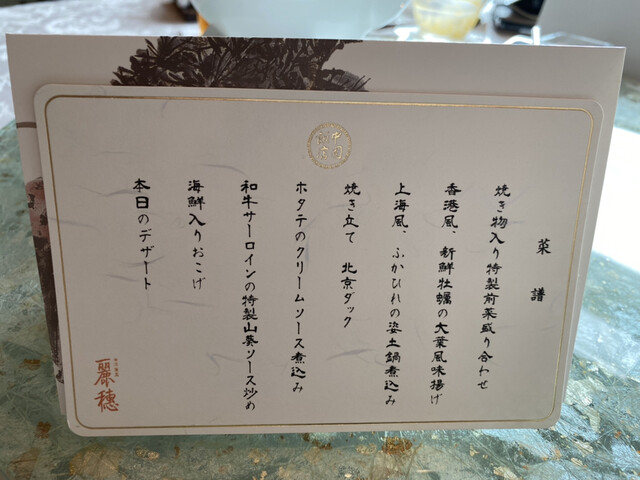 菜譜
焼き物入り特製前菜盛り合わせ
香港風、新鮮牡蠣の大葉風味揚げ
上海風、ふかひれの姿土鍋煮込み
焼き立て 北京ダック
ホタテのクリームソース煮込み
和牛サーロインの特製山葵ソース炒め
海鮮入りおこげ
本日のデザート
麗穂